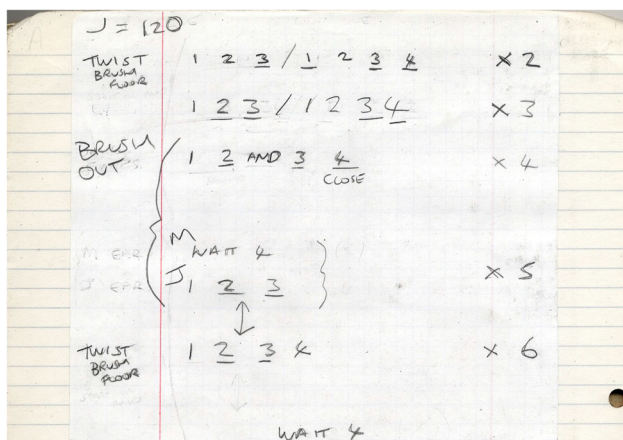 J = 120
TWIST BRUSH FLOOR 1 2 3 / 1 2 3 4 × 2
1 2 3 / 1 2 3 4 × 3
BRUSH OUT 1 2 AND 3 4 × 4
CLOSE
M WAIT 4
M EAR
J 1 2 3 × 5
J EAR
TWIST BRUSH FLOOR 1 2 3 4 × 6
WAIT 4